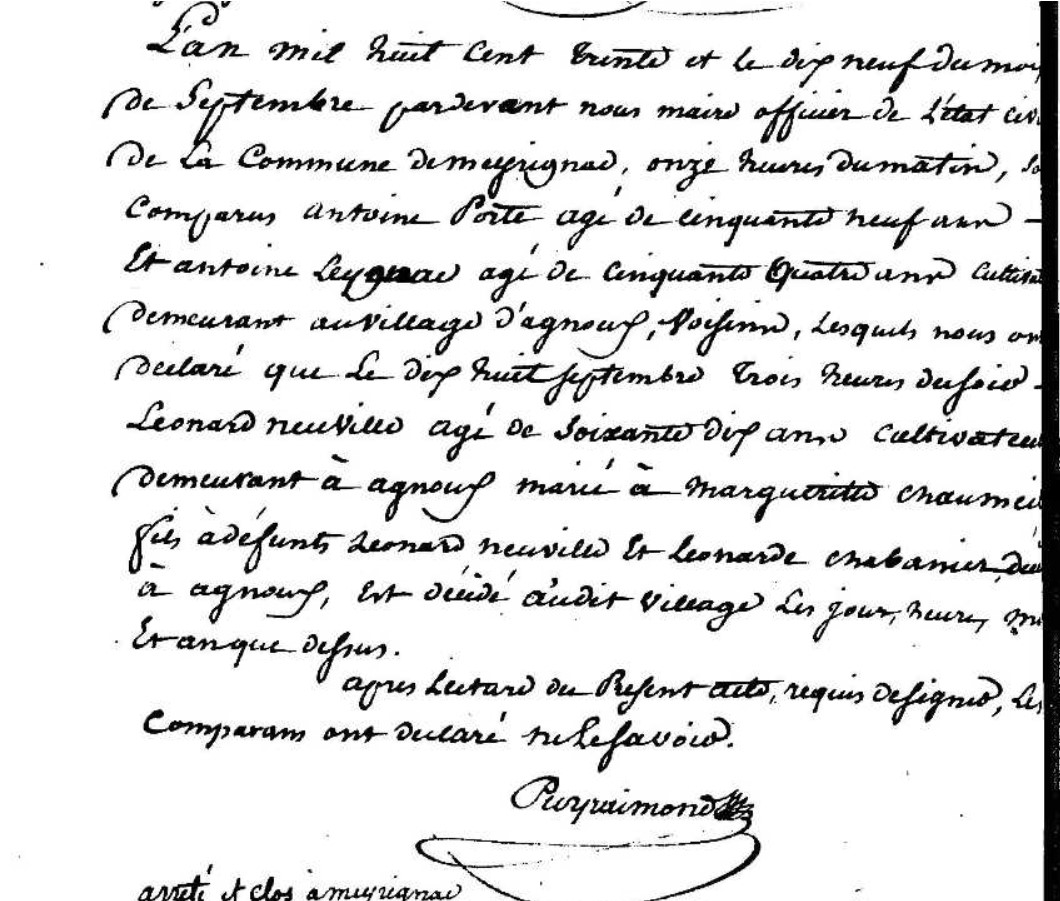 L'an mil huit cent trente et le dix neuf du moi
de Septembre pardevant nous maire officier de L'état civi
de La Commune de meyrignac, onze heures du matin, so
Comparus antoine Porte agé de cinquante neuf ans -
Et antoine Leygnac agé de cinquante quatre ans cultiva
demeurant au village d'agnoux, Voisins, Lesquels nous on
declaré que Le dix huit septembre trois heures du soir -
Leonard neuville agé de soixante dix ans cultivateu
demeurant à agnoux marié à marguerite chaumei
fils à défunts Leonard neuville Et Leonarde chabanier,
à agnoux, Est décédé audit village Les jour, heure,
Et an que dessus.
apres Lecture du Present acte, requis de signer, Les
Comparans ont declaré ne Le savoir.
Puyraimond
arreté et clos à meyrignac